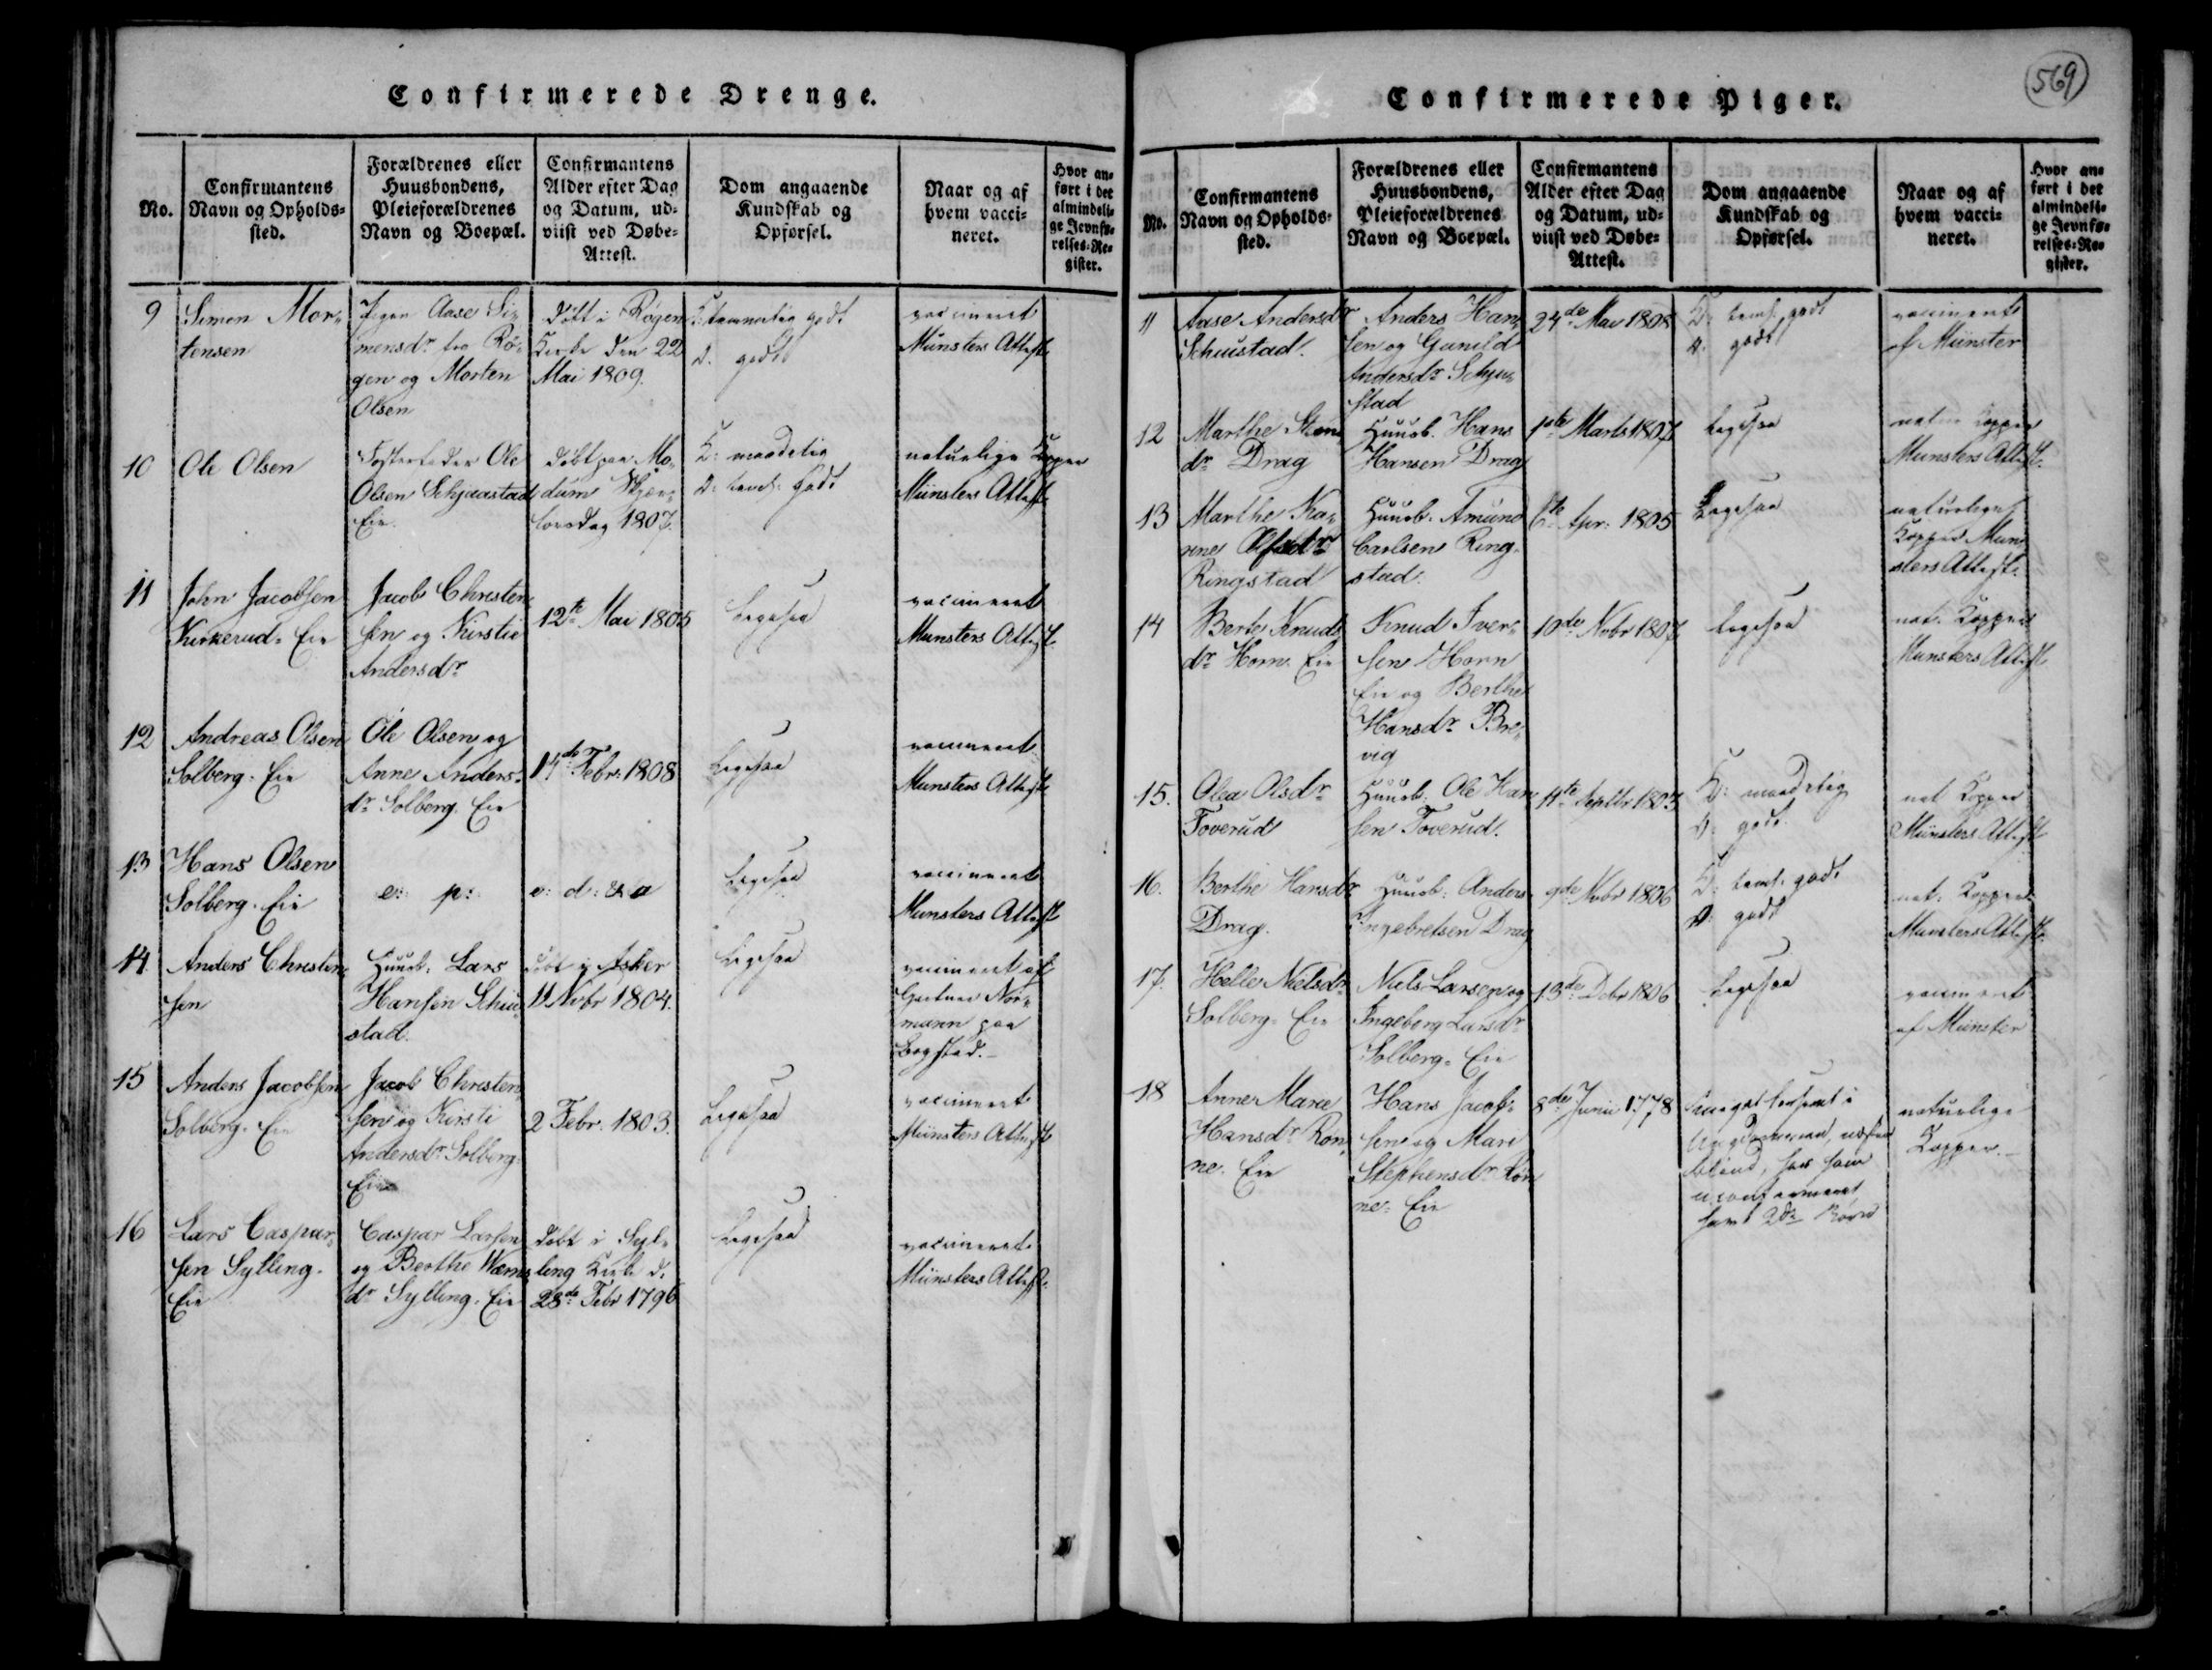 Confirmerede Drenge.
No.
Confirmantens
Navn og Opholds-
sted.
Forældrenes eller
Huusbondens,
Pleieforældrenes
Navn og Boepæl.
Confirmantens
Alder efter Dag
og Datum, ud-
viist ved Døbe-
Attest.
Dom angaaende
Kundskab og
Opførsel.
Naar og af
hvem vacci-
neret.
Hvor an-
ført i det
almindeli-
ge Jevnfø-
relses-Re-
gister.
9
Simon Mor-
tensen
Pigen Aase Si-
mensdr fra Rø-
gen og Morten
Olsen
døbt i Røgen
Kirke den 22
Mai 1809.
K: temmelig godt
O. godt
vaccineret
Münsters Attest
10
Ole Olsen
Fosterfader Ole
Olsen Schjaastad
Eie.
døbt paa Mo-
dum Skjær-
torsdag 1807.
K: maadelig
O: teml. godt
naturlige Kopper
Münsters Attest
11
John Jacobsen
Kirkerud-Eie
Jacob Christen-
sen og Kirstie
Andersdr
12te Mai 1805
Ligesaa
vaccineret
Munsters Attest
12
Andreas Olsen
Solberg-Eie
Ole Olsen og
Anne Anders-
dr Solberg. Eie
14de Febr: 1808
Ligesaa
vaccineret
Munsters Attest
13
Hans Olsen
Solberg-Eie
e: p:
e: d: & a
Ligesaa
vaccineret
Munsters Attest
14.
Anders Christen-
sen
Huusb: Lars
Hansen Schiu-
stad.
døbt i Asker
11 Novbr 1804.
Ligesaa
vaccineret af
Gartner Nor-
mann paa
Bogstad.
15
Anders Jacobsen
Solberg-Eie
Jacob Christen-
sen og Kirsti
Andersdr Solberg-
Eie
2 Febr. 1803.
Ligesaa
vaccineret
Münsters Attest
16
Lars Caspar-
sen Sylling-
Eie
Caspar Larsen
og Berthe
dr Sylling-Eie
døbt i Syl-
ling Kirke d.
28de Febr 1796
Ligesaa
vaccineret
Münsters Attest.
569
Confirmerede Piger.
No.
Confirmantens
Navn og Opholds-
sted.
Forældrenes eller
Huusbondens,
Pleieforældrenes
Navn og Boepæl.
Confirmantens
Alder efter Dag
og Datum, ud-
viist ved Døbe-
Attest.
Dom angaaende
Kundskab og
Opførsel.
Naar og af
hvem vacci-
neret.
Hvor an-
ført i det
almindeli-
ge Jevnfø-
relses-Re-
gister.
11
Aase Andersdr
Schiustad.
Anders Han-
sen og Gunild
Andersdr Schiu-
stad
24de Mai 1808
K: teml. godt
O. godt
vaccineret
af Münster
12
Marthe
dr Drag
Huusb. Hans
Hansen Drag
1ste Marts 1807
Ligesaa
natur Kopper
Munsters Attest.
13
Marthe Ka-
rine
Ringstad
Huusb. Amund
Carlsen Ring-
stad.
6te Apr: 1805
Ligesaa
naturlige
Kopper Mun-
sters Attest.
14
Berte Knuds
dr Horn. Eie
Knud Iver-
sen Horn
Eie og Berthe
Hansdr Bre-
vig
10de Novbr 1807
Ligesaa
nat. Kopper
Munsters Attest
15.
Olea Olsdr
Toverud
Huusb: Ole Han
sen Toverud.
11te Septbr 1805
K: maadelig
O: godt
nat Kopper
Münsters Attest
16.
Berthe Hansdr
Drag.
Huusb: Anders
Ingebretsen Drag
9de Novbr 1806
K: teml. godt
O: godt
nat. Kopper
Munsters Attest.
17.
Helle Nielsdr
Solberg-Eie
Niels Larsen og
Ingeborg Larsdr
Solberg-Eie
13de Debr 1806
Ligesaa
vaccineret
af Münster
18
Anne Marie
Hansdr Røn-
ne. Eie
Hans Jacob-
sen og Mari
Stephensdr Røn
ne-Eie
8de Junii 1778
blind,
uconfirmeret
naturlige
Kopper.